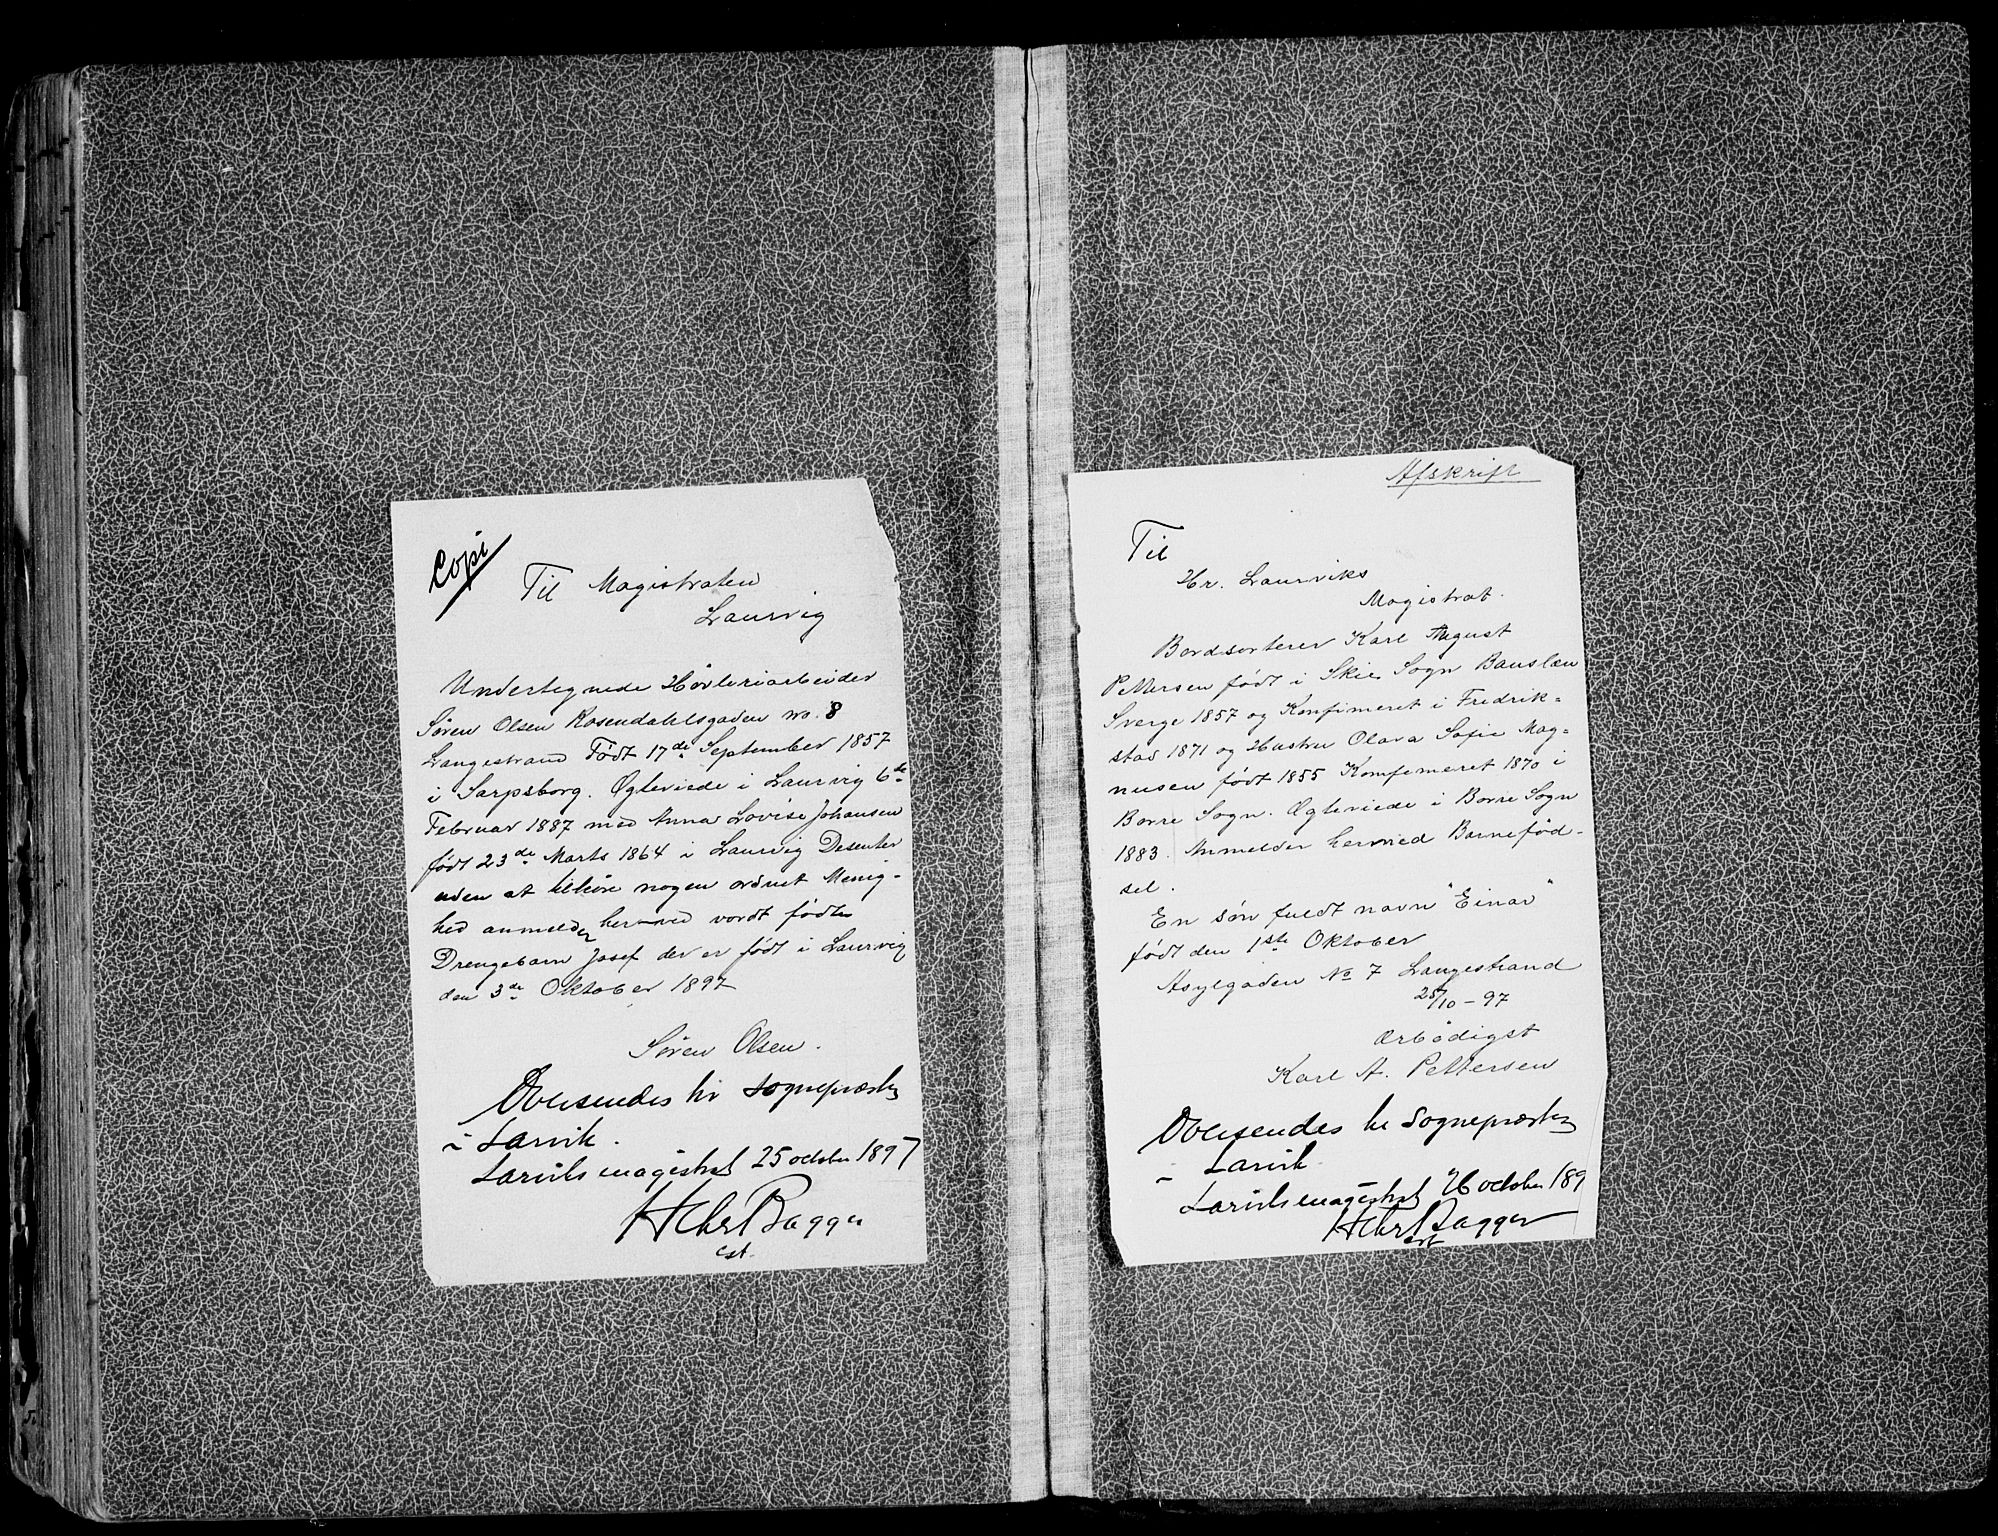 Copi
Til Magistraten
Laurvig
Undertegnede Høvleriarbeider
Søren Olsen Rosendahlsgaden no. 8
Langestrand Født 17de September 1857
i Sarpsborg. Ogteviede i Laurvig 6te
Februar 1887 med Anna Lovise Johansen
født 23de Marts 1864 i Laurvig Desenter
uden at tilhöre nogen ordnet Menig-
hed anmelder herved vordt fødte
Drengebarn Josef der er født i Laurvig
den 3de Oktober 1897
Søren Olsen.
Oversendes hr sognepræsten
i Larvik.
Larviks magistrat 25 october 1897
Bagger
cst.
Afskrift
Til
Hr. Laurviks
Magistrat.
Bordsorterer Karl August
Pettersen født i Skie Sogn
Sverge 1857 og Konfimeret i Fredrik-
stad 1871 og Hustru Olava Sofie Mag-
nusen født 1855 Komfimeret 1870 i
Borre Sogn. Ogteviede i Borre Sogn
1883. Anmelder herved Barnefød-
sel.
En søn fuldt navn "Einar"
født den 1ste Oktober
Asylgaden No 7 Langestrand
25/10 - 97
Ærbødigst
Karl A. Pettersen
Oversendes hr Sognepræsten
i Larvik
Larviks magistrat 26 october 189
Bagger
cst